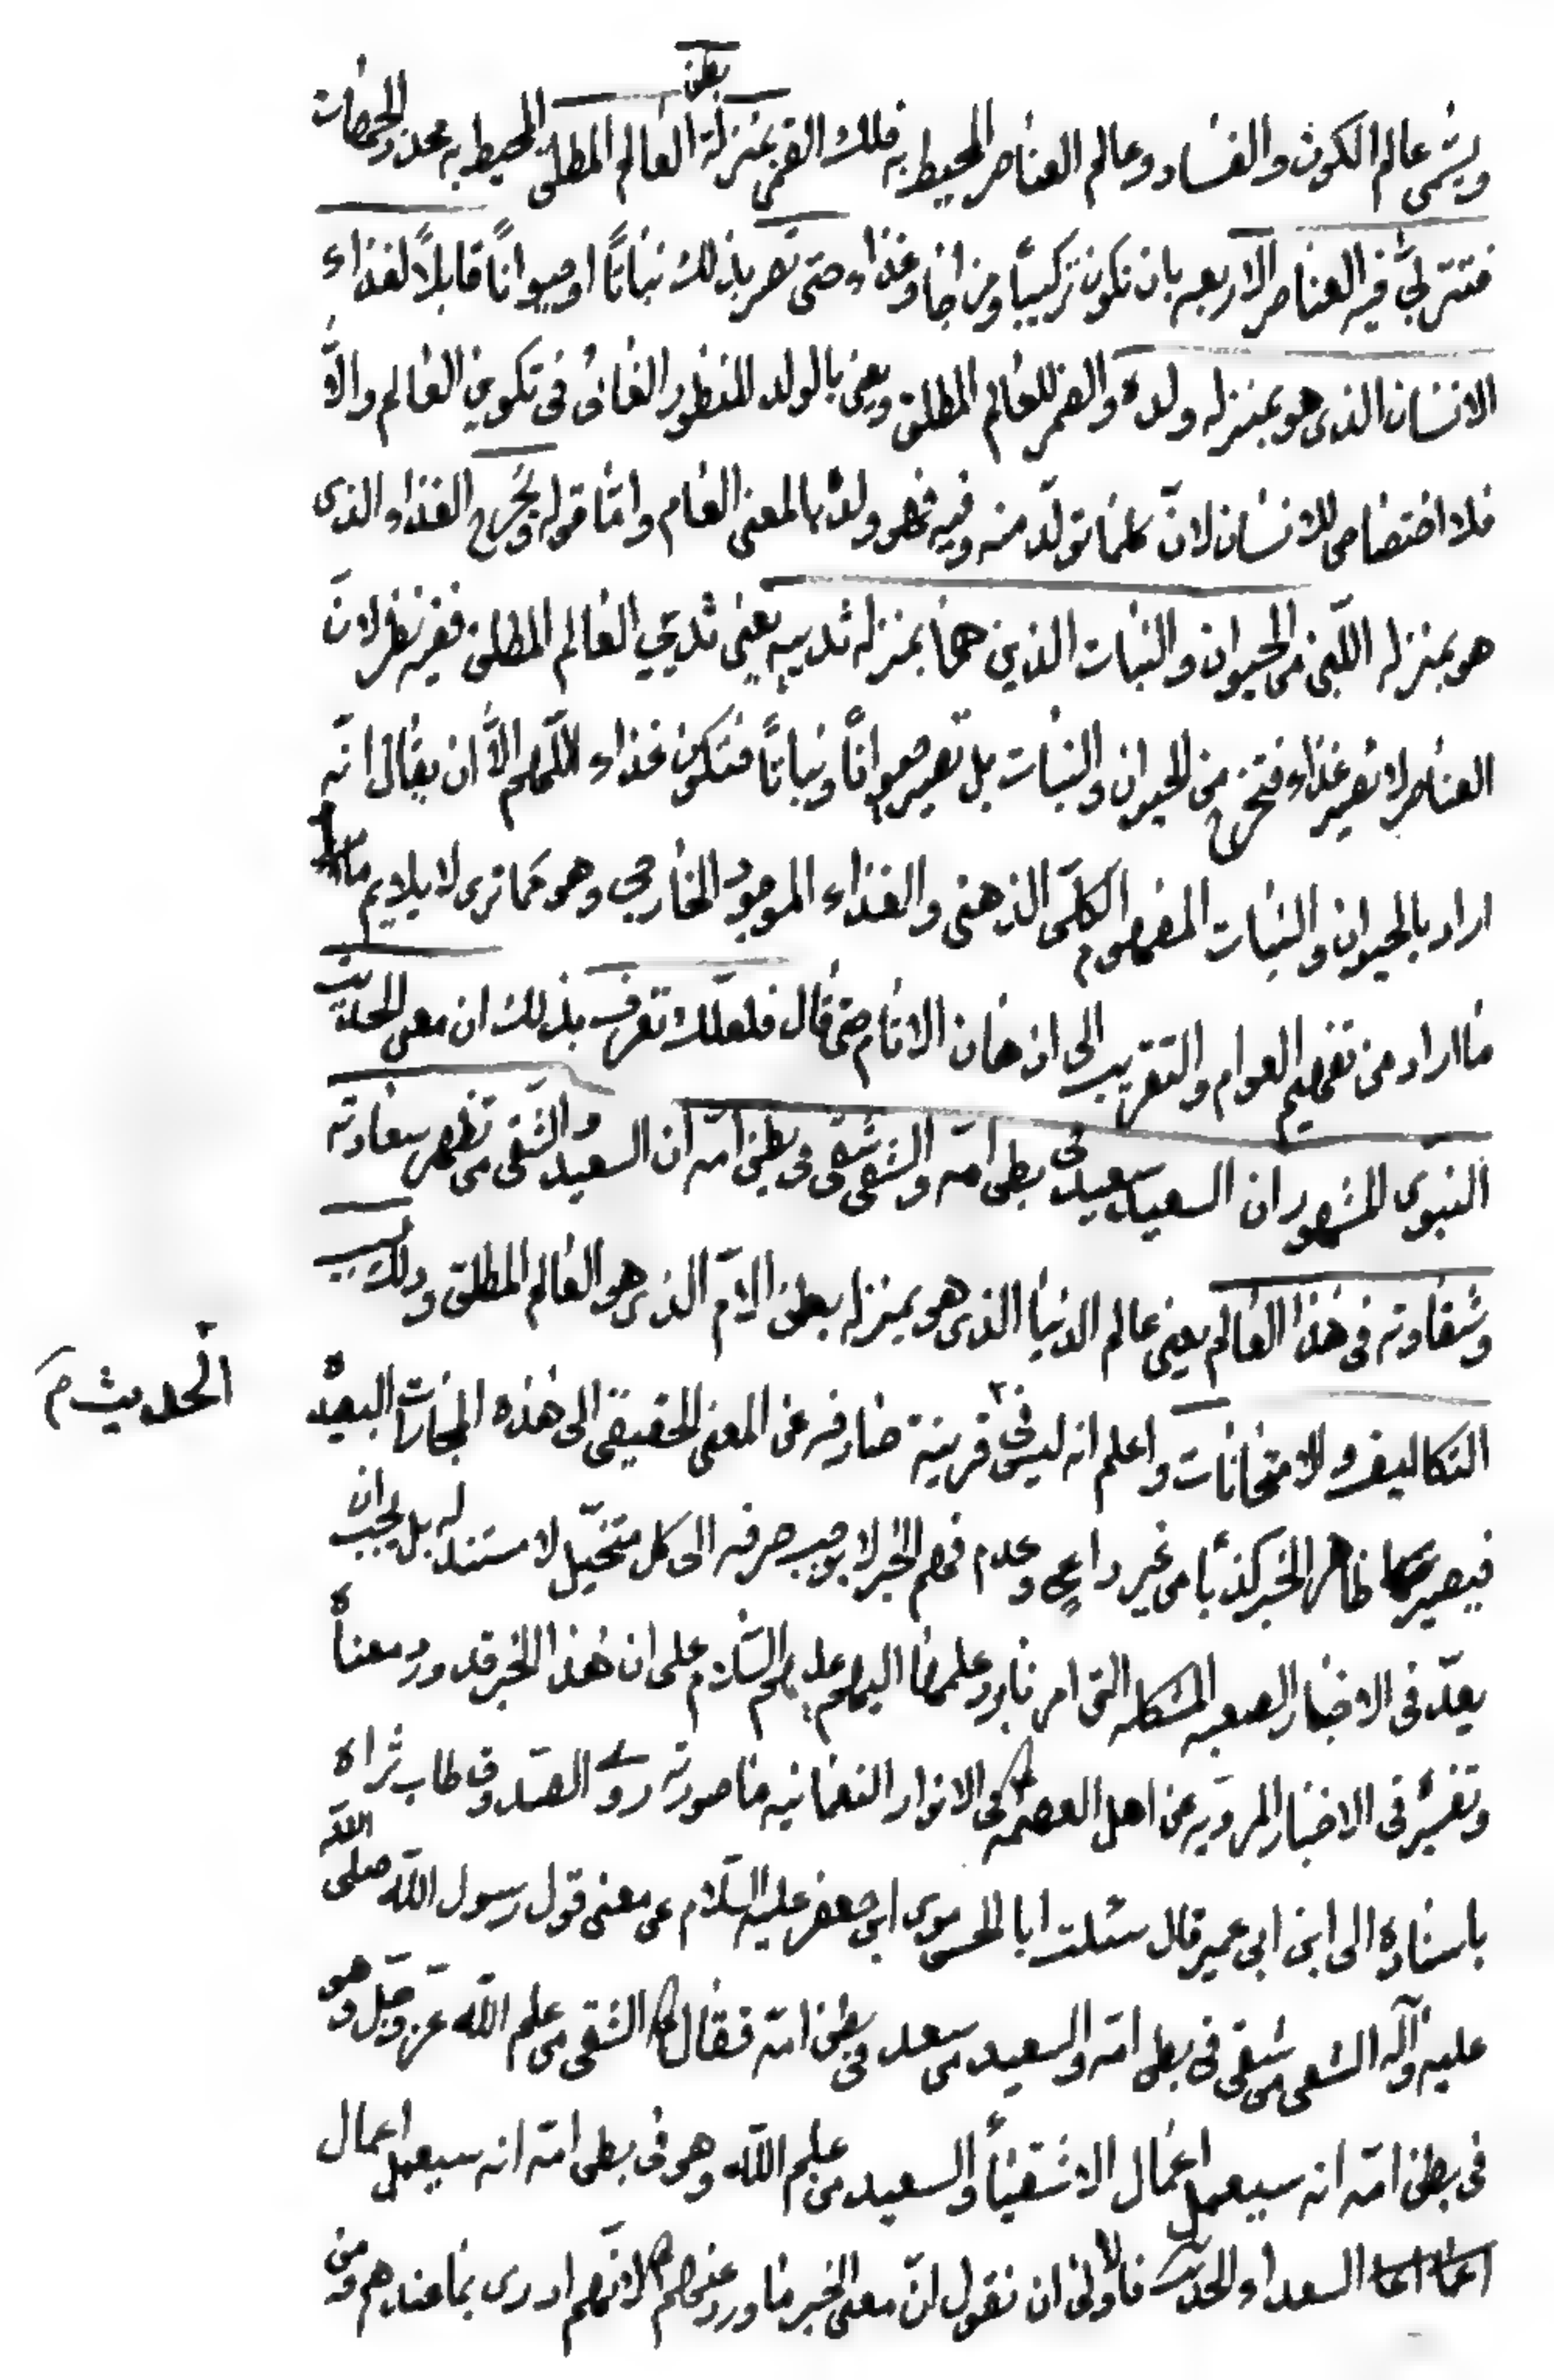 بطن
ويسمى عالم الكون والفساد وعالم العناصر المحيط به فلك القمر بمنزلة العالم المطلق المحيط به محدد الجهات
فتتربى فيه العناصر الاربعه بان تكون تركيبًا ومزاجًا وغذاء حتى تصير بذلك نباتًا او حيوانًا قابلًا لغذاء
الانسان الذى هو بمنزله ولده والقمر للعالم المطلق ويعنى بالولد المنظور الغائى فى تكوين العالم والاّ
فلا اختصاص للانسان لانّ كلما تولّد منه وفيه فهو ولده بالمعنى العام وامّا قوله ويخرج الغذاء الذى
هو بمنزله اللّبن من الحيوان والنبات الذين هما بمنزله ثدييه يعنى ثديي العالم المطلق ففيه نظر لانّ
العناصر لا تصير غذاء فتخرج من الحيوان والنبات بل تصير حيوانًا ونباتًا فتكون غذاء اللّهم الاّ ان يقال انّه
اراد بالحيوان والنبات المفهوم الكلّى الذهنى والغذاء الموجود الخارجى وهو كما ترى لا يلايم
ما اراد من تفهيم العوام والتقريب الى اذهان الانام حتى قال فلعلّك تعرف بذلك ان معنى الحديث
النبوى المشهور ان السعيد سعيد فى بطن امّه والشقى شقى فى بطن امّه ان السعيد والشقى من تظهر سعادته
وشقاوته فى هذا العالم يعنى عالم الدنيا الذى هو بمنزله بطن الامّ الذى هو العالم المطلق وذلك بسبب
التكاليف والامتحانات واعلم انه ليس فى قرينة صارفه عن المعنى الحقيقى الى هذه المجازات البعيده
الحديث م
فيصير ظاهر الخبر كذبًا من غير داعٍ وعدم فهم الخبر لا يوجب صرفه الى كل متخيّل لا مستند له بل يجب ان
يعدّ فى الاخبار الصعبه المشكله التى امرنا برد علمها اليهم عليهم السّلام على ان هذا الخبر قد ورد معناه
وتفسيره فى الاخبار المرويه عن اهل العصمه فى الانوار النعمانيه ما صورته روى الصّدوق طاب ثراه
باسناده الى ابن ابى عمير قال سئلت ابا الحسن موسى ابن جعفر عليه السّلام عن معنى قول رسول اللّه صلى اللّه
عليه وآله الشقى من شقى فى بطن امّه والسعيد من سعد فى بطن امّه فقال الشقى من علم اللّه عزّ وجلّ وهو
فى بطن امّه انه سيعمل اعمال الاشقياء والسعيد من علم اللّه وهو فى بطن امّه انه سيعمل اعمال
السعداء الحديث فالاولى ان نقول انّ معنى الخبر ما ورد عنهم لانّهم ادرى بما عندهم ومن